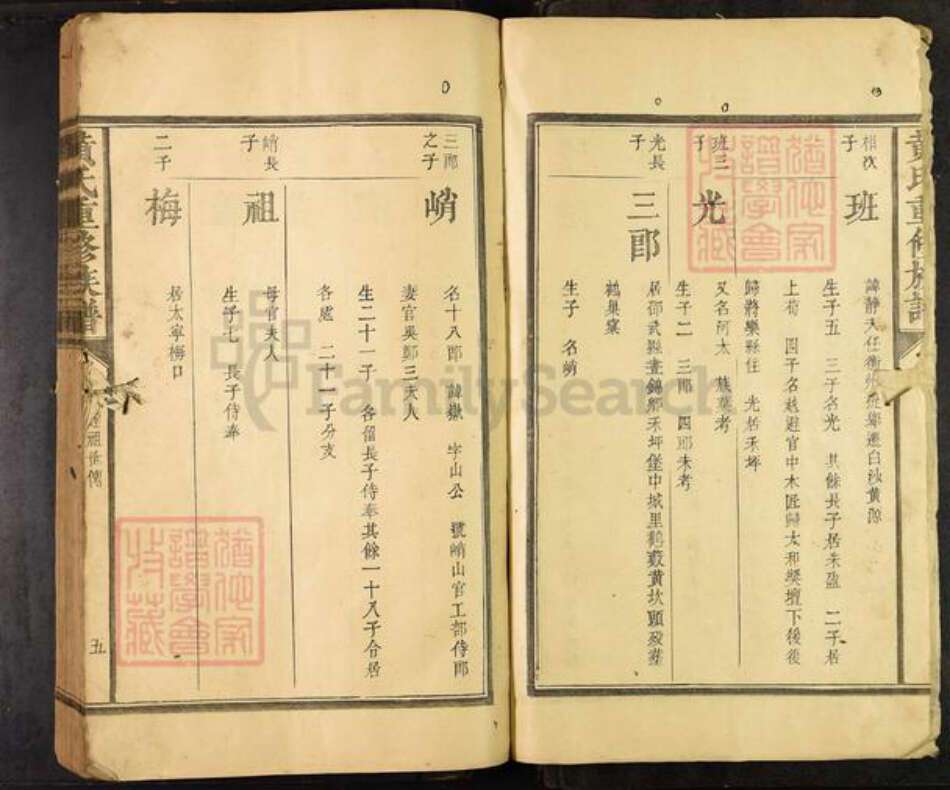 黃氏重修族譜
相次子
班
諱靜夫任衡州從鄉遷白沙黃源
生子五 三子名光 其餘長子居朱盈 二子居
上荀 四子名越避官中木匠歸太和樊壇下後後
歸將樂縣住 光居禾坪
班三子
光
又名阿太 葬塟考
生子二 三郎 四郎未考
光長子
三郎
居邵武縣晝錦鄉禾坪堡中城里鶴藪黃坎頭歿塟
鶴巢窠
生子 名峭
三郎之子
峭
名十八郎 諱嶽 字山公 號峭山官工部侍郎
妻官吳鄭三夫人
生二十一子 各留長子侍奉其餘一十八子合居
各處 二十一子分支
峭長子
祖
母官夫人
生子七 長子侍奉
二子
梅
居太寧梅口
黃氏重修族譜
祖世傳
五
猶他家譜學會收藏
猶他家譜學會收藏
FamilySearch